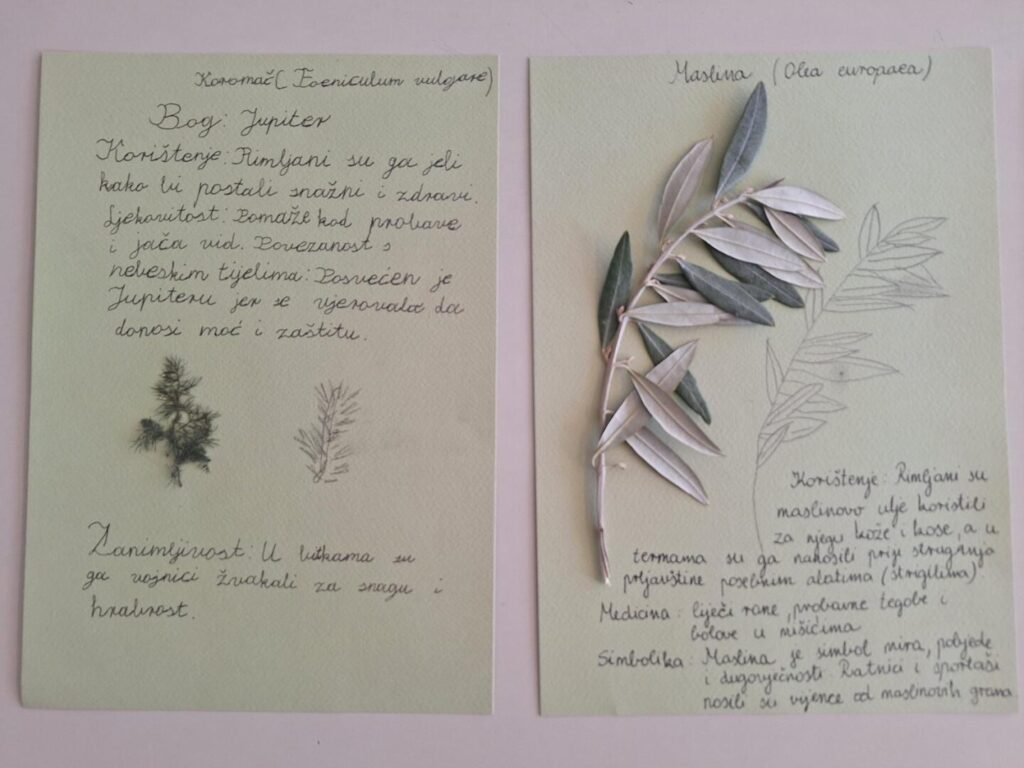 Koromač (Foeniculum vulgare)
Bog: Jupiter
Korištenje: Rimljani su ga jeli
kako bi postali snažni i zdravi.
Ljekovitost: Pomaže kod probave
i jača vid. Povezanost s
nebeskim tijelima: Posvećen je
Jupiteru jer se vjerovalo da
donosi moć i zaštitu.
Zanimljivost: U bitkama su
ga vojnici žvakali za snagu i
hrabrost.
Maslina (Olea europaea)
Korištenje: Rimljani su
maslinovo ulje koristili
za njegu kože i kose, a u
termama su ga nanosili prije struganja
prljavštine posebnim alatima (strigilima).
Medicina: liječi rane, probavne tegobe i
bolove u mišićima
Simbolika: Maslina je simbol mira, pobjede
i dugovječnosti. Ratnici i sportaši
nosili su vijence od maslinovih grana.